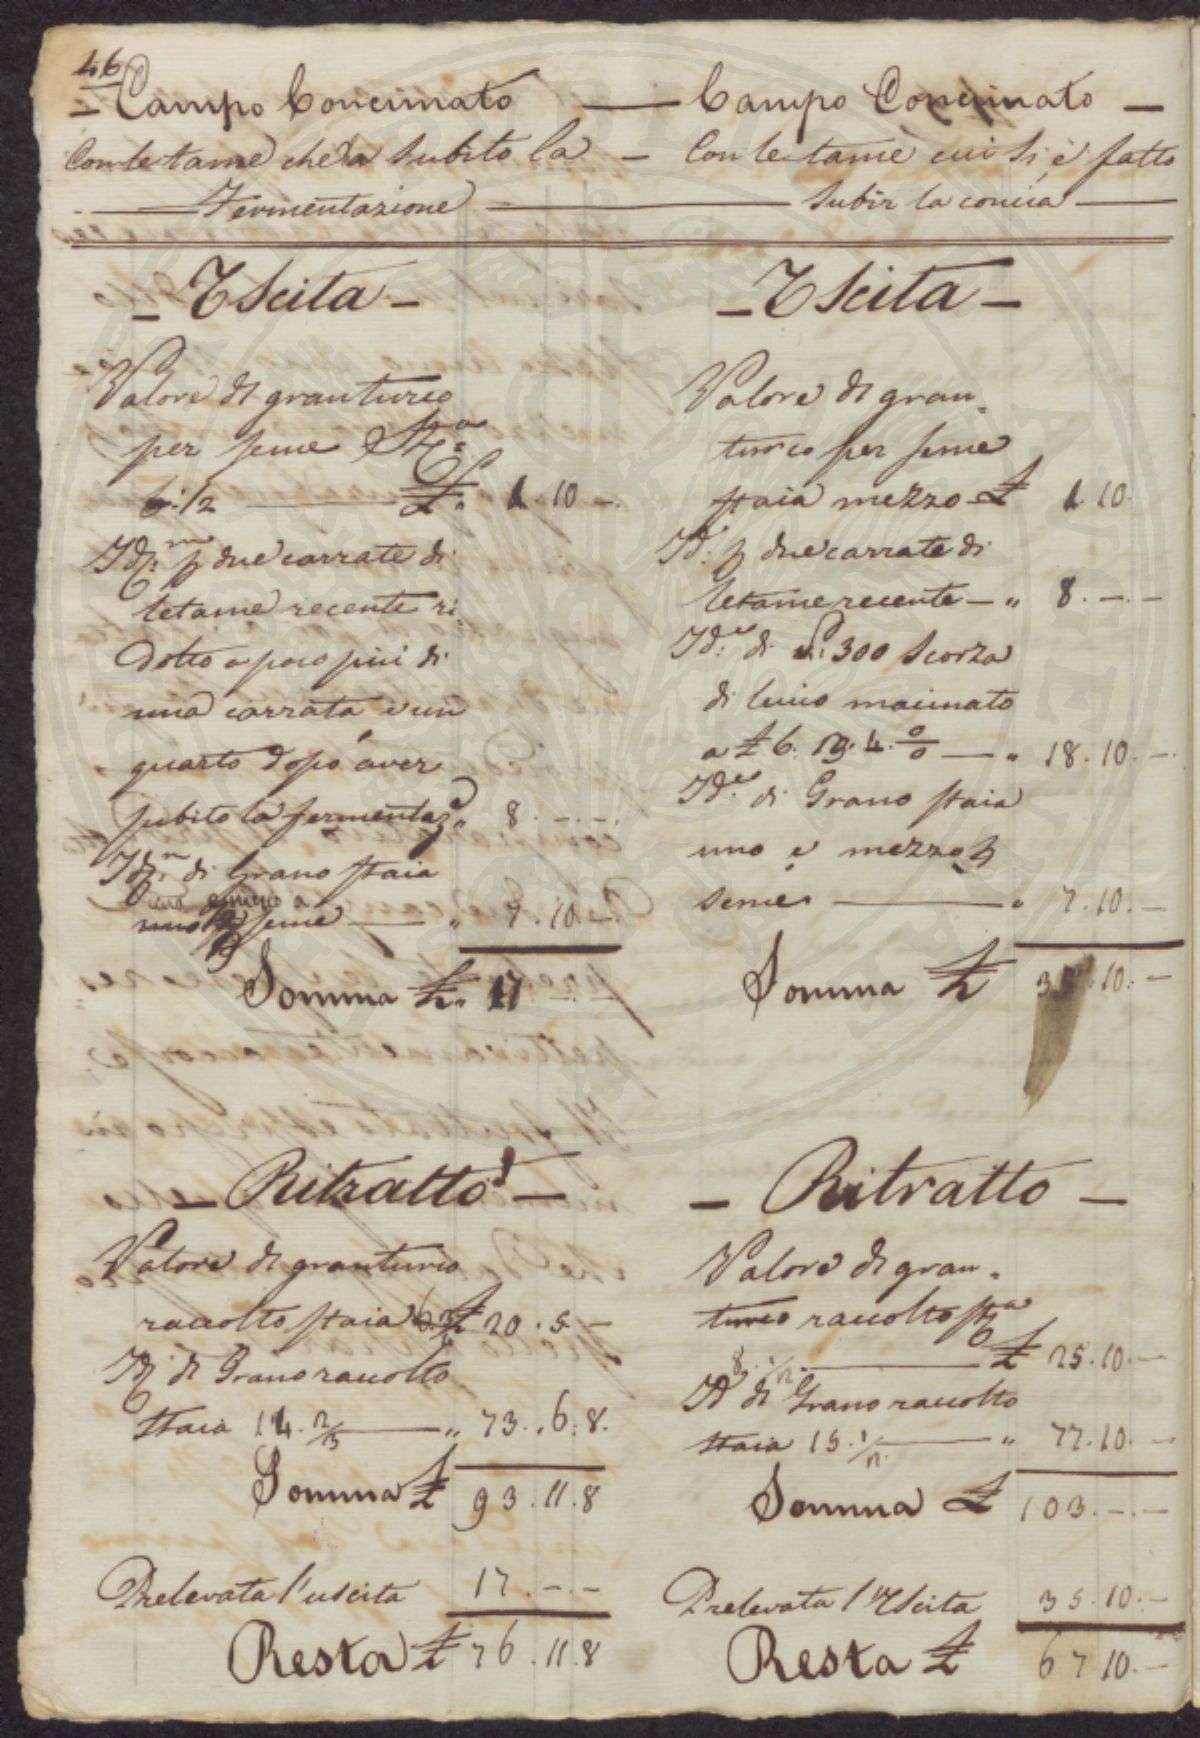 46
- Campo Concimato
Con letame che à subito la
Fermentazione
- Uscita -
Valore di granturco
per seme Sta
½ £ 1.10.-
Idm p due carrate di
letame recente ri
dotto a poco più di
una carrata e un
quarto dopo aver
subito la fermentaz. " 8.-.-
Idm di Grano staia
uno e mezzo a
seme " 7.10.-
Somma £ 17.-.-
- Ritratto -
Valore di granturco
raccolto staia £ 20.5.-
Id di Grano raccolto
staia 14.2/3 " 73.6.8.
Somma £ 93.11.8
Prelevata l'uscita 17.-.-
Resta £ 76.11.8
- Campo Concimato -
- Con letame cui si è fatto
subir la concia
- Uscita -
Valore di gran=
turco per seme
staia mezzo £ 1.10.
Id. p due carrate di
letame recente - " 8.-.-
Id. di £. 300 Scorza
di leccio macinato
a £ 6. 4. % - " 18.10.-
Id. di Grano staia
uno e mezzo p
seme " 7.10.-
Somma £ 35.10.-
- Ritratto -
Valore di gran=
turco raccolto sta
8.½ £ 25.10.-
Id di Grano raccolto
staia 15.½ " 77.10.-
Somma £ 103.-.-
Prelevata l'Uscita 35.10.-
Resta £ 67.10.-